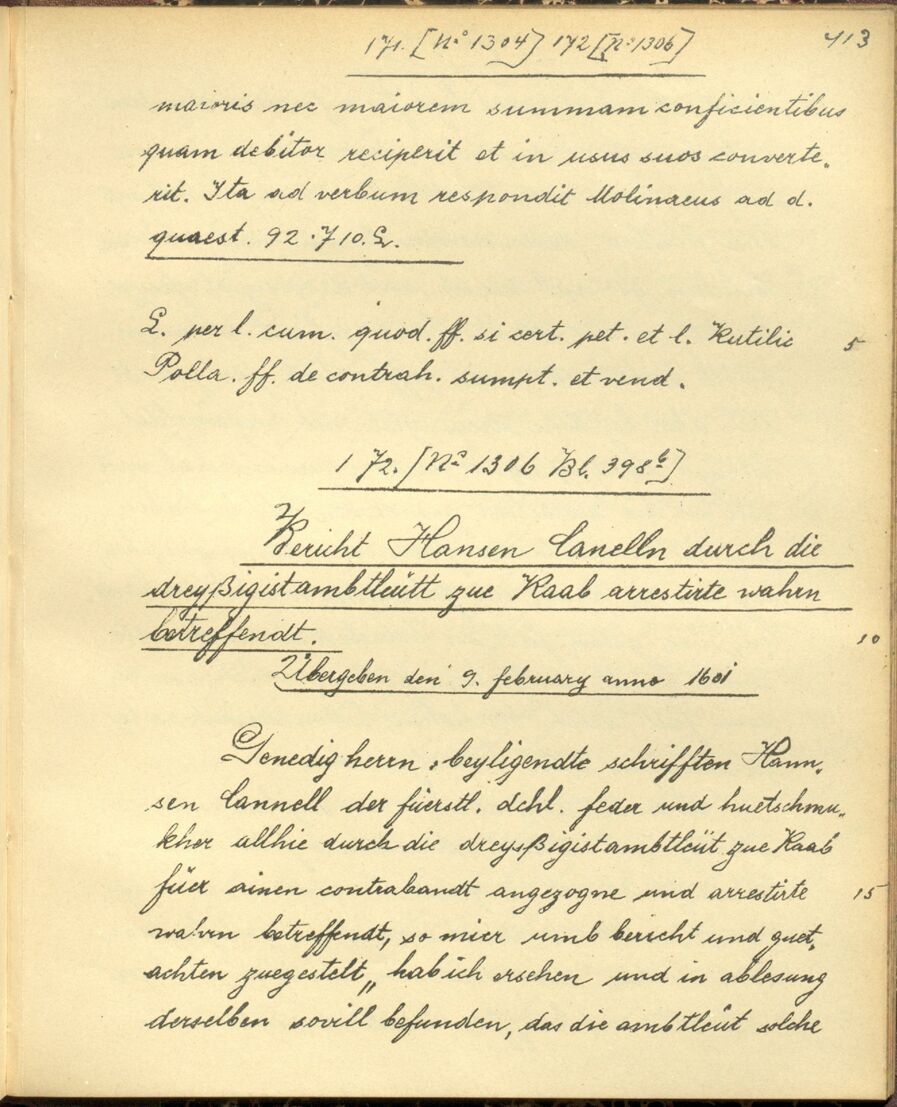 171. [No 1304] 172 [No 1306] 413
maioris nec maiorem summam conficientibus
quam debitor reciperit et in usus suos converte„
rit. Ita ad verbum respondit Molinaeus ad d.
quaest. 92.710.
L. per l. cum. quod. ff. si cert. pet. et l. Rutilic 5
Polla. ff. de contrah. sumpt. et vend.
172. [No 1306 Bl. 398b]
Bericht Hansen Canelln durch die
dreyßigistambtleütt zue Raab arrestirte wahrn
betreffendt. 10
Übergeben den 9. february anno 1601
Genedig herrn, beyligendte schrifften Hann„
sen Cannell der fürstl. dchl. feder und huetschmu„
kher allhie durch die dreyßigistambtleüt zue Raab
füer ainen contrabandt angezogne und arrestirte 15
wahrn betreffendt, so mier umb bericht und guet„
achten zuegestelt„ hab ich ersehen und in ablesung
derselben sovill befunden, das die ambtleüt solche